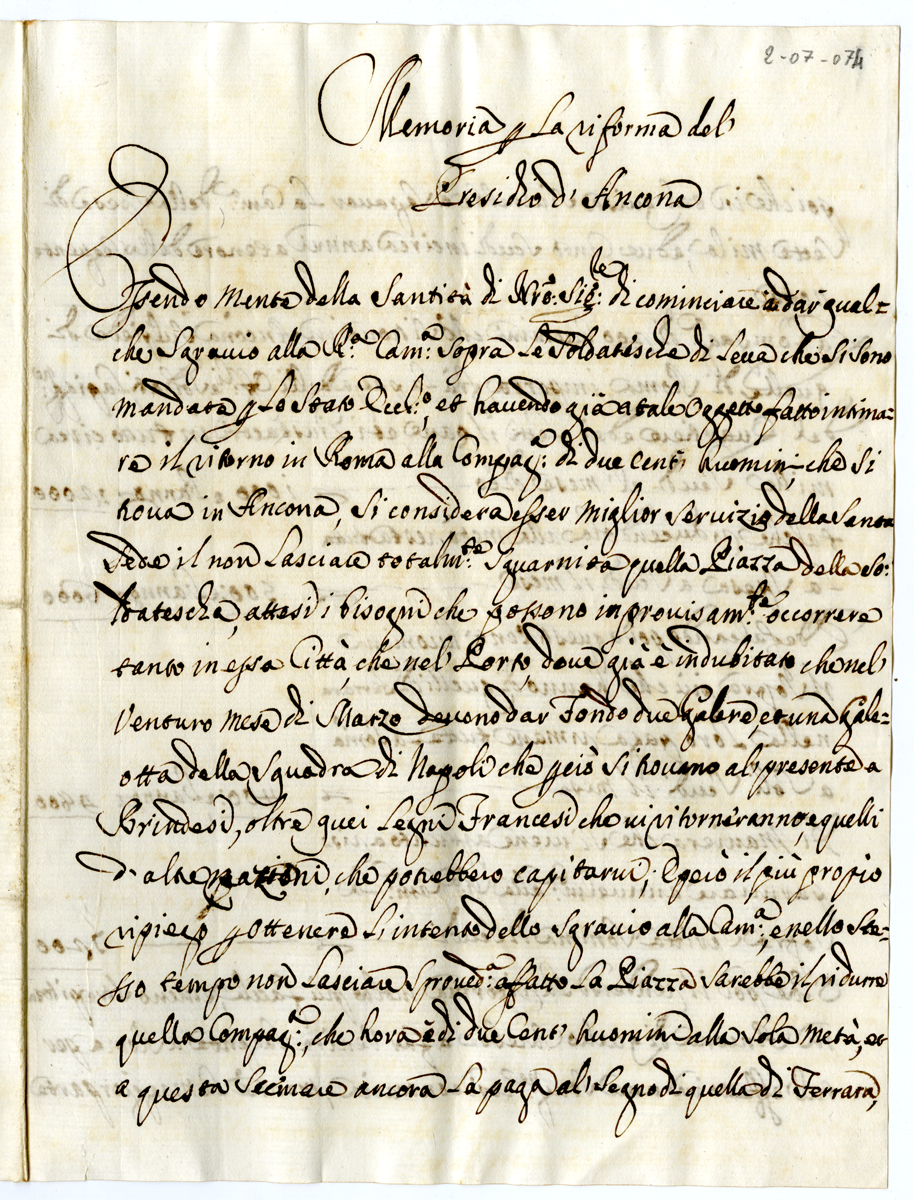 2-07-074
Memoria p La riforma del
Presidio d'Ancona
Essendo mente della Santità di Nro: Sig.re di cominciare à dar qual=
che sgravio alla R.a Cam.a sopra le soldatesche di leva che si sono
mandate p lo Stato Eccl.o, et havendo già a tale oggetto fatto intima=
re il ritorno in Roma alla Compag.a di due cent' huomini, che si
trova in Ancona, si considera esser miglior servizio della Santa
Sede il non lasciare totalm.te sguarnita quella Piazza della So:
ldatescha, attesi i bisogni che possono improvisam.te occorrere
tanto in essa Città, che nel Porto, dove già è indubitato che nel
Venturo mese di Marzo devono dar fondo due Galere, et una Gale=
otta della squadra di Napoli che p ciò si trovano al presente a
Brindesi, oltre quei legni Francesi che vi ritorneranno, e quelli
d'altre nazioni, che potrebbero capitarvi; E perciò il più proprio
ripiego p ottenere l'intento dello sgravio alla Cam.a, e nello ste=
sso tempo non lasciare sproved.a affatto la Piazza sarebbe il ridurre
quella Compag.a, che hora è di due Cent' huomini alla sola metà, et
a questa scemare ancora la paga al segno di quella di Ferrara,